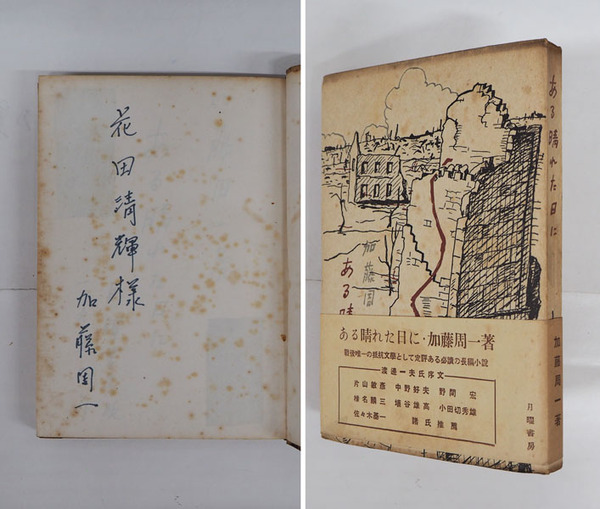 花田清輝様
加藤周一
加藤周
ある晴
ある晴れた日に・加藤周一著
戦後唯一の抵抗文學として定評ある必讀の長編小説
渡邊一夫氏序文
片山敏彦 中野好夫 野間 宏
椎名麟三 埴谷雄高 小田切秀雄
佐々木基一 諸氏推薦
ある晴れた日に
加藤周一著
月曜書房